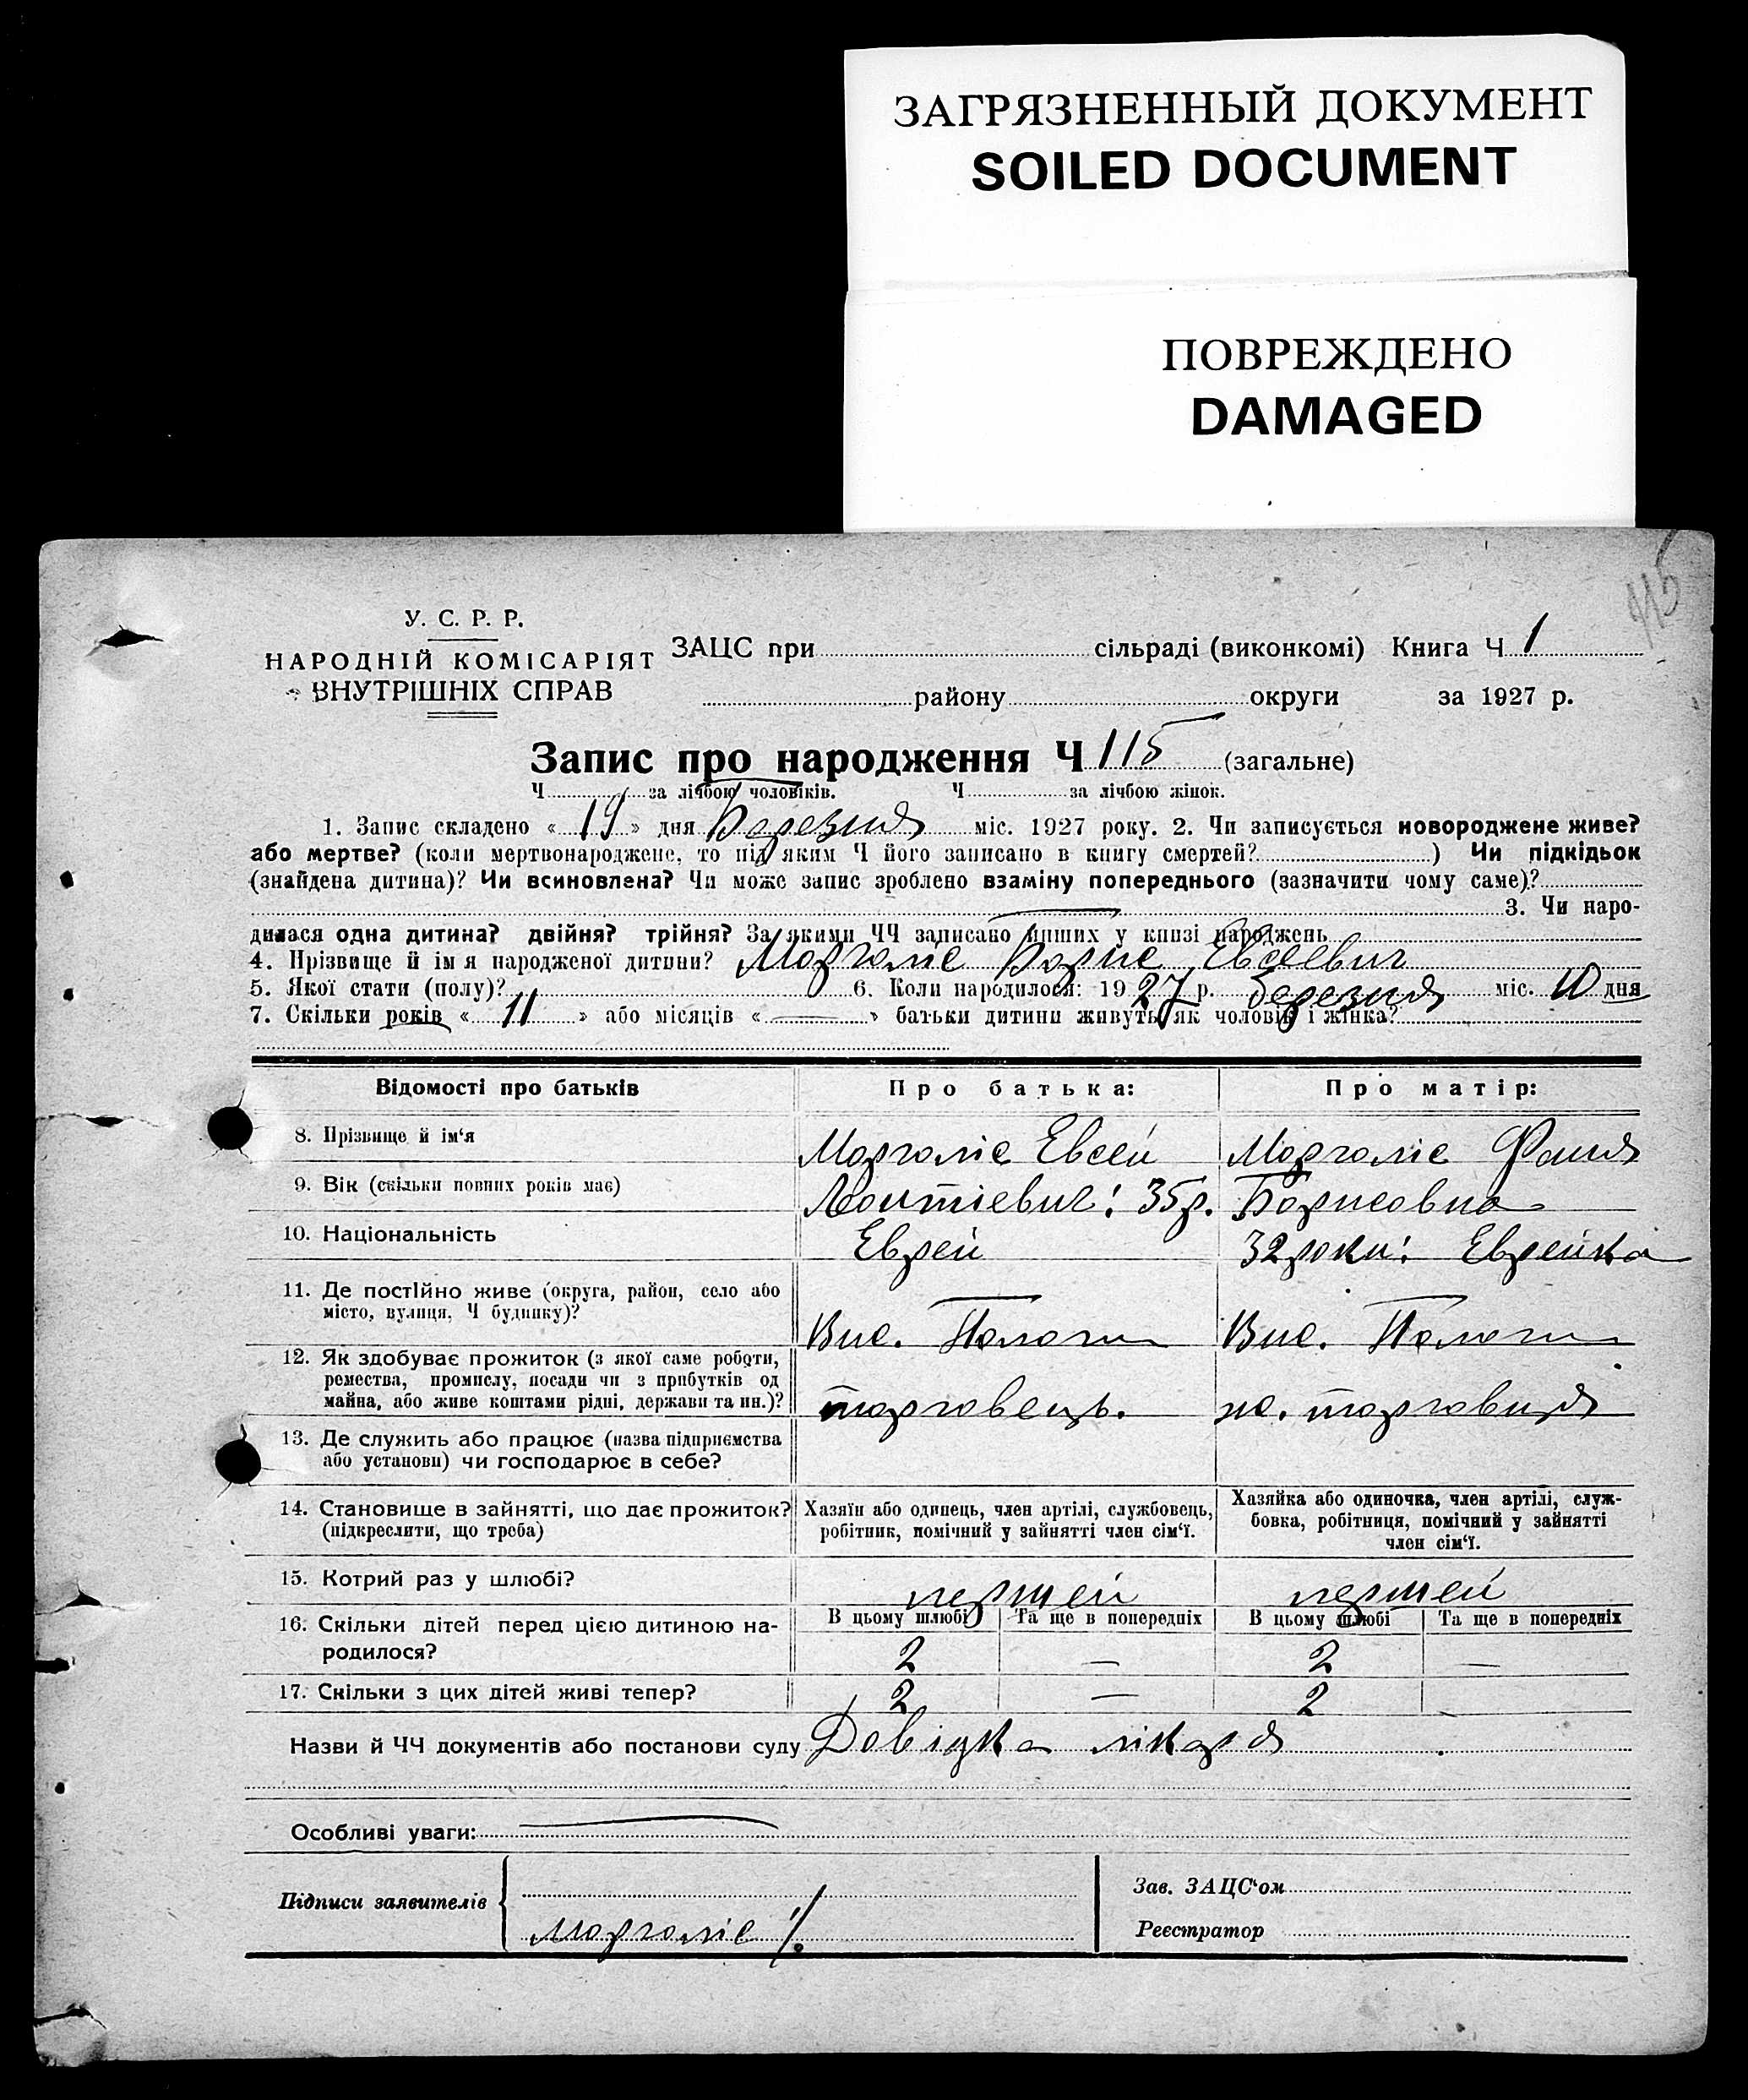 ЗАГРЯЗНЕННЫЙ ДОКУМЕНТ
SOILED DOCUMENT
ПОВРЕЖДЕНО
DAMAGED
115
У. С. Р. Р.
НАРОДНІЙ КОМІСАРІЯТ
ВНУТРІШНІХ СПРАВ
ЗАЦС при сільраді (виконкомі) Книга Ч 1
району округи за 1927 р.
Запис про народження Ч 115 (загальне)
Ч за лічбою чоловіків. Ч за лічбою жінок.
1. Запис складено « 19 » дня Березня міс. 1927 року. 2. Чи записується новороджене живе?
або мертве? (коли мертвонароджене, то під яким Ч його записано в книгу смертей? ) Чи підкідьок
(знайдена дитина)? Чи всиновлена? Чи може запис зроблено взаміну попереднього (зазначити чому саме)?
3. Чи наро-
дилася одна дитина? двійня? трійня? За якими ЧЧ записано інших у книзі народжень
4. Прізвище й ім я народженої дитини? Маргаліс Борис Евсеевич
5. Якої стати (полу)? 6. Коли народилося: 1927 р. березня міс. 10 дня
7. Скільки років « 11 » або місяців « — » батьки дитини живуть як чоловік і жінка?
Відомості про батьків Про батька: Про матір:
8. Прізвище й ім‘я Маргаліс Евсей Маргаліс Фаня
9. Вік (скільки повних років має) 35р. Борисовна
10. Національність Еврей 32 роки: Еврейка
11. Де постійно живе (округа, район, село або
місто, вулиця, Ч будинку)? Вис. Пологи Вис. Пологи
12. Як здобуває прожиток (з якої саме роботи,
ремества, промислу, посади чи з прибутків од
майна, або живе коштами рідні, держави та ин.)? торговець. торговця
13. Де служить або працює (назва підприємства
або установи) чи господарює в себе?
14. Становище в зайнятті, що дає прожиток? Хазяїн або одинець, член артілі, службовець, Хазяйка або одиночка, член артілі, служ-
(підкреслити, що треба) робітник, помічний у зайнятті член сім‘ї. бовка, робітниця, помічний у зайнятті
член сім‘ї.
15. Котрий раз у шлюбі? першей першей
16. Скільки дітей перед цією дитиною на- В цьому шлюбі Та ще в попередніх В цьому шлюбі Та ще в попередніх
родилося? 2 — 2 —
17. Скільки з цих дітей живі тепер? 2 — 2
Назви й ЧЧ документів або постанови суду Довідка лікаря
Особливі уваги:
Підписи заявителів Маргаліс
Зав. ЗАЦС‘ом
Реєстратор